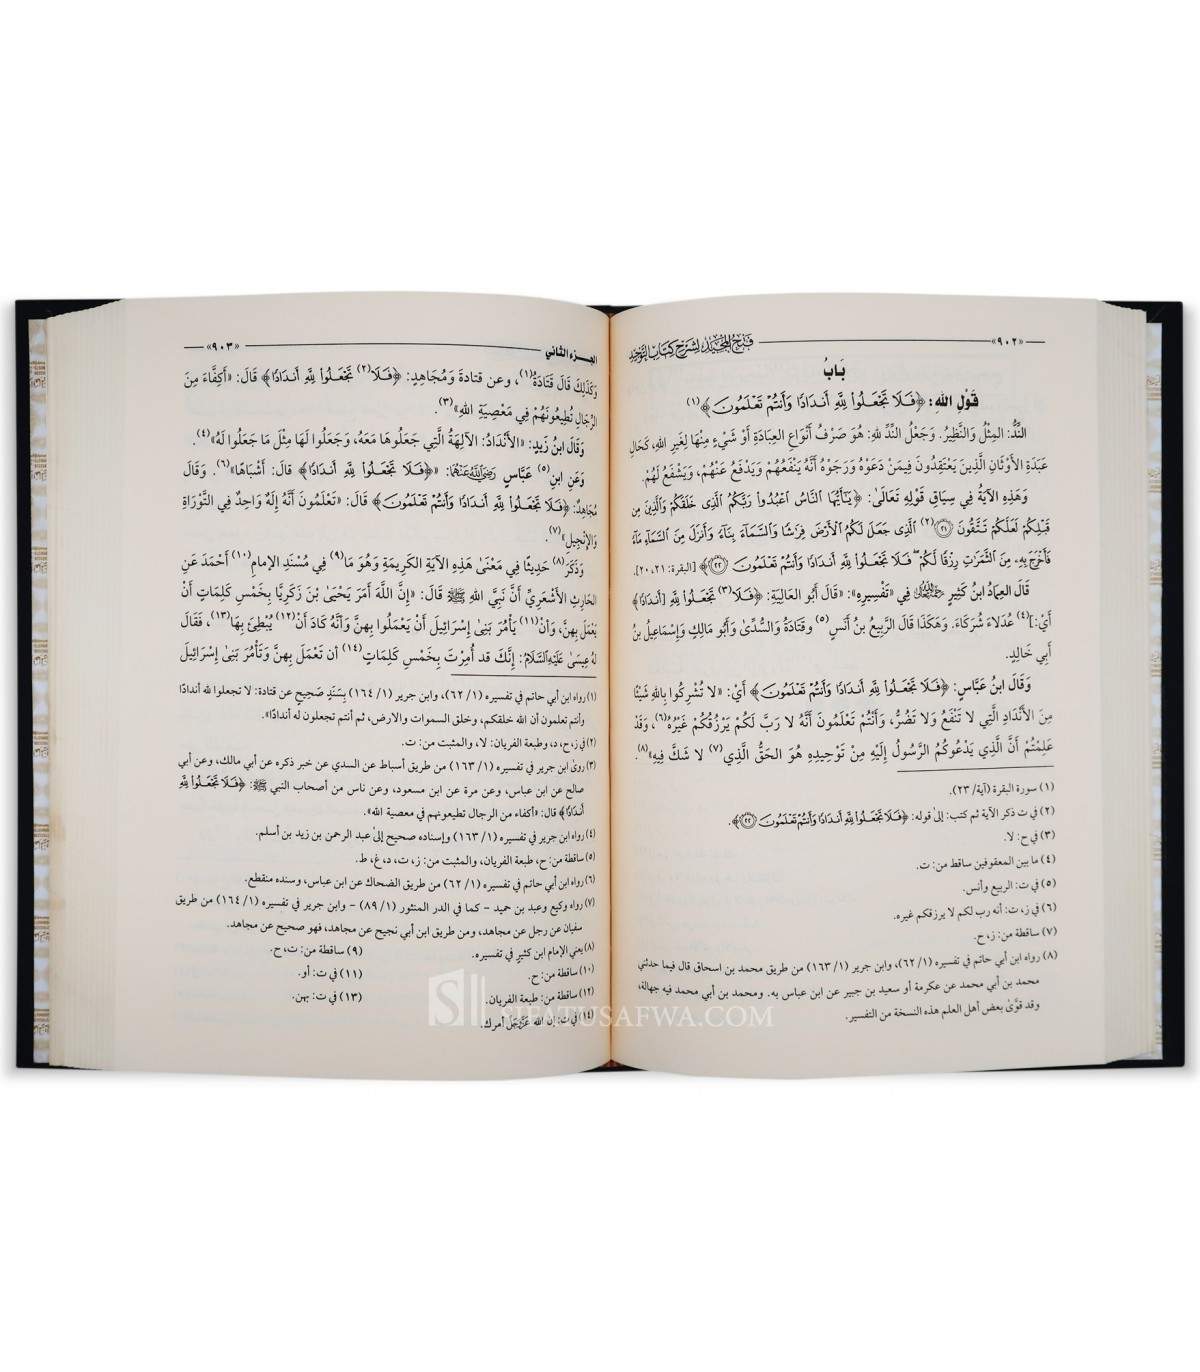 «٩٠٢» فتح المجيد لشرح كتاب التوحيد
بَابُ
قَوْلِ اللهِ: ﴿فَلَا تَجْعَلُوا۟ لِلَّهِ أَندَادًا وَأَنتُمْ تَعْلَمُونَ﴾(١)
النِّدُّ: المِثْلُ وَالنَّظِيرُ. وَجَعْلُ النِّدِّ للهِ: هُوَ صَرْفُ أَنْوَاعِ العِبَادَةِ أَوْ شَيْءٍ مِنْهَا لِغَيرِ اللهِ، كَحَالِ
عَبَدَةِ الأَوْثَانِ الَّذِينَ يَعْتَقِدُونَ فِيمَنْ دَعَوْهُ وَرَجَوْهُ أَنَّهُ يَنْفَعُهُمْ وَيَدْفَعُ عَنْهُمْ، وَيَشْفَعُ لَهُمْ.
وَهَذِهِ الآيَةُ فِي سِيَاقِ قَوْلِهِ تَعَالَىٰ: ﴿يَـٰٓأَيُّهَا ٱلنَّاسُ ٱعْبُدُوا۟ رَبَّكُمُ ٱلَّذِى خَلَقَكُمْ وَٱلَّذِينَ مِن
قَبْلِكُمْ لَعَلَّكُمْ تَتَّقُونَ ۝٢١(٢) ٱلَّذِى جَعَلَ لَكُمُ ٱلْأَرْضَ فِرَٰشًا وَٱلسَّمَآءَ بِنَآءً وَأَنزَلَ مِنَ ٱلسَّمَآءِ مَآءً
فَأَخْرَجَ بِهِۦ مِنَ ٱلثَّمَرَٰتِ رِزْقًا لَّكُمْ ۖ فَلَا تَجْعَلُوا۟ لِلَّهِ أَندَادًا وَأَنتُمْ تَعْلَمُونَ ۝٢٢﴾ [البقرة: ٢١، ٢٠].
قَالَ العِمَادُ ابنُ كَثِيرٍ رَحِمَهُ اللهُ فِي «تَفْسِيرِهِ»: «قَالَ أَبُو العَالِيَةِ: ﴿فَلَا(٣) تَجْعَلُوا۟ لِلَّهِ [أَندَادًا﴾
أَيْ:](٤) عُدَلَاءَ شُرَكَاءَ. وَهَكَذَا قَالَ الرَّبِيعُ بنُ أَنَسٍ(٥) وَقَتَادَةُ وَالسُّدِّيُّ وَأَبُو مَالِكٍ وَإِسْمَاعِيلُ بنُ
أَبِي خَالِدٍ.
وَقَالَ ابنُ عَبَّاسٍ: ﴿فَلَا تَجْعَلُوا۟ لِلَّهِ أَندَادًا وَأَنتُمْ تَعْلَمُونَ﴾ أَيْ: «لا تُشْرِكُوا بِاللهِ شَيْئًا
مِنَ الأَنْدَادِ الَّتِي لا تَنْفَعُ وَلا تَضُرُّ، وَأَنْتُمْ تَعْلَمُونَ أَنَّهُ لا رَبَّ لَكُمْ يَرْزُقُكُمْ غَيْرُهُ(٦)، وَقَدْ
عَلِمْتُمْ أَنَّ الَّذِي يَدْعُوكُمُ الرَّسُولُ إِلَيْهِ مِنْ تَوْحِيدِهِ هُوَ الحَقُّ الَّذِي(٧) لا شَكَّ فِيهِ»(٨).
(١) سورة البقرة (آية/ ٢٣).
(٢) في ت ذكر الآية ثم كتب: إلى قوله: ﴿فَلَا تَجْعَلُوا۟ لِلَّهِ أَندَادًا وَأَنتُمْ تَعْلَمُونَ ۝٢٢﴾.
(٣) في ح: لا.
(٤) ما بين المعقوفين ساقط من: ت.
(٥) في ت: الربيع وأنس.
(٦) في ز، ت: أنه رب لكم لا يرزقكم غيره.
(٧) ساقطة من: ز، ح.
(٨) رواه ابن أبي حاتم في تفسيره (٦٢/١)، وابن جرير (١٦٣/١) من طريق محمد بن اسحاق قال فيما حدثني
محمد بن أبي محمد عن عكرمة أو سعيد بن جبير عن ابن عباس به. ومحمد بن أبي محمد فيه جهالة،
وقد قوَّىٰ بعض أهل العلم هذه النسخة من التفسير.
الجزء الثاني «٩٠٣»
وَكَذَلِكَ قَالَ قَتَادَةُ(١)، وعن قتادةَ وَمُجَاهِدٍ: ﴿فَلَا(٢) تَجْعَلُوا۟ لِلَّهِ أَندَادًا﴾ قَالَ: «أَكِفَّاءَ مِنَ
الرِّجَالِ تُطِيعُونَهُمْ فِي مَعْصِيَةِ اللهِ»(٣).
وَقَالَ ابنُ زَيدٍ: «الأَنْدَادُ: الآلِهَةُ الَّتِي جَعَلُوهَا مَعَهُ، وَجَعَلُوا لَهَا مِثْلَ مَا جَعَلُوا لَهُ»(٤).
وَعَنِ ابنِ(٥) عَبَّاسٍ رَضِيَ اللهُ عَنْهُمَا: «﴿فَلَا تَجْعَلُوا۟ لِلَّهِ أَندَادًا﴾ قالَ: أَشْبَاهًا»(٦). وَقَالَ
مُجَاهِدٌ: ﴿فَلَا تَجْعَلُوا۟ لِلَّهِ أَندَادًا وَأَنتُمْ تَعْلَمُونَ﴾ قَالَ: «تَعْلَمُونَ أَنَّهُ إِلَهٌ وَاحِدٌ فِي التَّوْرَاةِ
وَالإِنْجِيلِ»(٧).
وَذَكَرَ(٨) حَدِيثًا فِي مَعْنَىٰ هَذِهِ الآيَةِ الكَرِيمَةِ وَهُوَ مَا(٩) فِي مُسْنَدِ الإمامِ(١٠) أَحْمَدَ عَنِ
الحَارِثِ الأَشْعَرِيِّ أَنَّ نَبِيَّ اللهِ ﷺ قَالَ: «إِنَّ اللَّهَ أَمَرَ يَحْيَىٰ بْنَ زَكَرِيَّا بِخَمْسِ كَلِمَاتٍ أَنْ
يَعْمَلَ بِهِنَّ، وَأَنْ(١١) يَأْمُرَ بَنِيْ إِسْرَائِيلَ أَنْ يَعْمَلُوا بِهِنَّ وَأَنَّهُ كَادَ أَنْ(١٢) يُبْطِئَ بِهَا(١٣)، فَقَالَ
لهُ عِيسَىٰ عَلَيْهِ السَّلَامُ: إِنَّكَ قد أُمِرْتَ بِخَمْسِ كَلِمَاتٍ(١٤) أن تَعْمَلَ بِهِنَّ وَتَأْمُرَ بَنِىْ إِسْرَائِيلَ
(١) رواه ابن أبي حاتم في تفسيره (٦٢/١)، وابن جرير (١٦٤/١) بِسَنَدٍ صَحِيحٍ عن قتادة: لا تجعلوا لله أندادًا
وأنتم تعلمون أن الله خلقكم، وخلق السموات والارض، ثم أنتم تجعلون له أندادًا».
(٢) في ز، ح، د، وطبعة الفريان: لا، والمثبت من: ت.
(٣) روىٰ ابن جرير في تفسيره (١٦٣/١) من طريق أسباط عن السدي عن خبر ذكره عن أبي مالك، وعن أبي
صالح عن ابن عباس، وعن مرة عن ابن مسعود، وعن ناس من أصحاب النبي ﷺ: ﴿فَلَا تَجْعَلُوا۟ لِلَّهِ
أَندَادًا﴾ قال: «أكفاء من الرجال تطيعونهم في معصية الله».
(٤) رواه ابن جرير في تفسيره (١٦٣/١) وإسناده صحيح إلىٰ عبد الرحمن بن زيد بن أسلم.
(٥) ساقطة من: ح، طبعة الفريان، والمثبت من: ز، ت، د، غ، ط.
(٦) رواه ابن أبي حاتم في تفسيره (٦٢/١) من طريق الضحاك عن ابن عباس، وسنده منقطع.
(٧) رواه وكيع وعبد بن حميد – كما في الدر المنثور (٨٩/١) – وابن جرير في تفسيره (١٦٤/١) من طريق
سفيان عن رجل عن مجاهد، ومن طريق ابن أبي نجيح عن مجاهد، فهو صحيح عن مجاهد.
(٨) يعني الإمام ابن كثير في تفسيره. (٩) ساقطة من: ت، ح.
(١٠) ساقطة من: ح. (١١) في ت: أو.
(١٢) ساقطة من: طبعة الفريان. (١٣) في ت: بهن.
(١٤) في ت: إن الله عَزَّ وَجَلَّ أمرك.
SIFATUSAFWA.COM